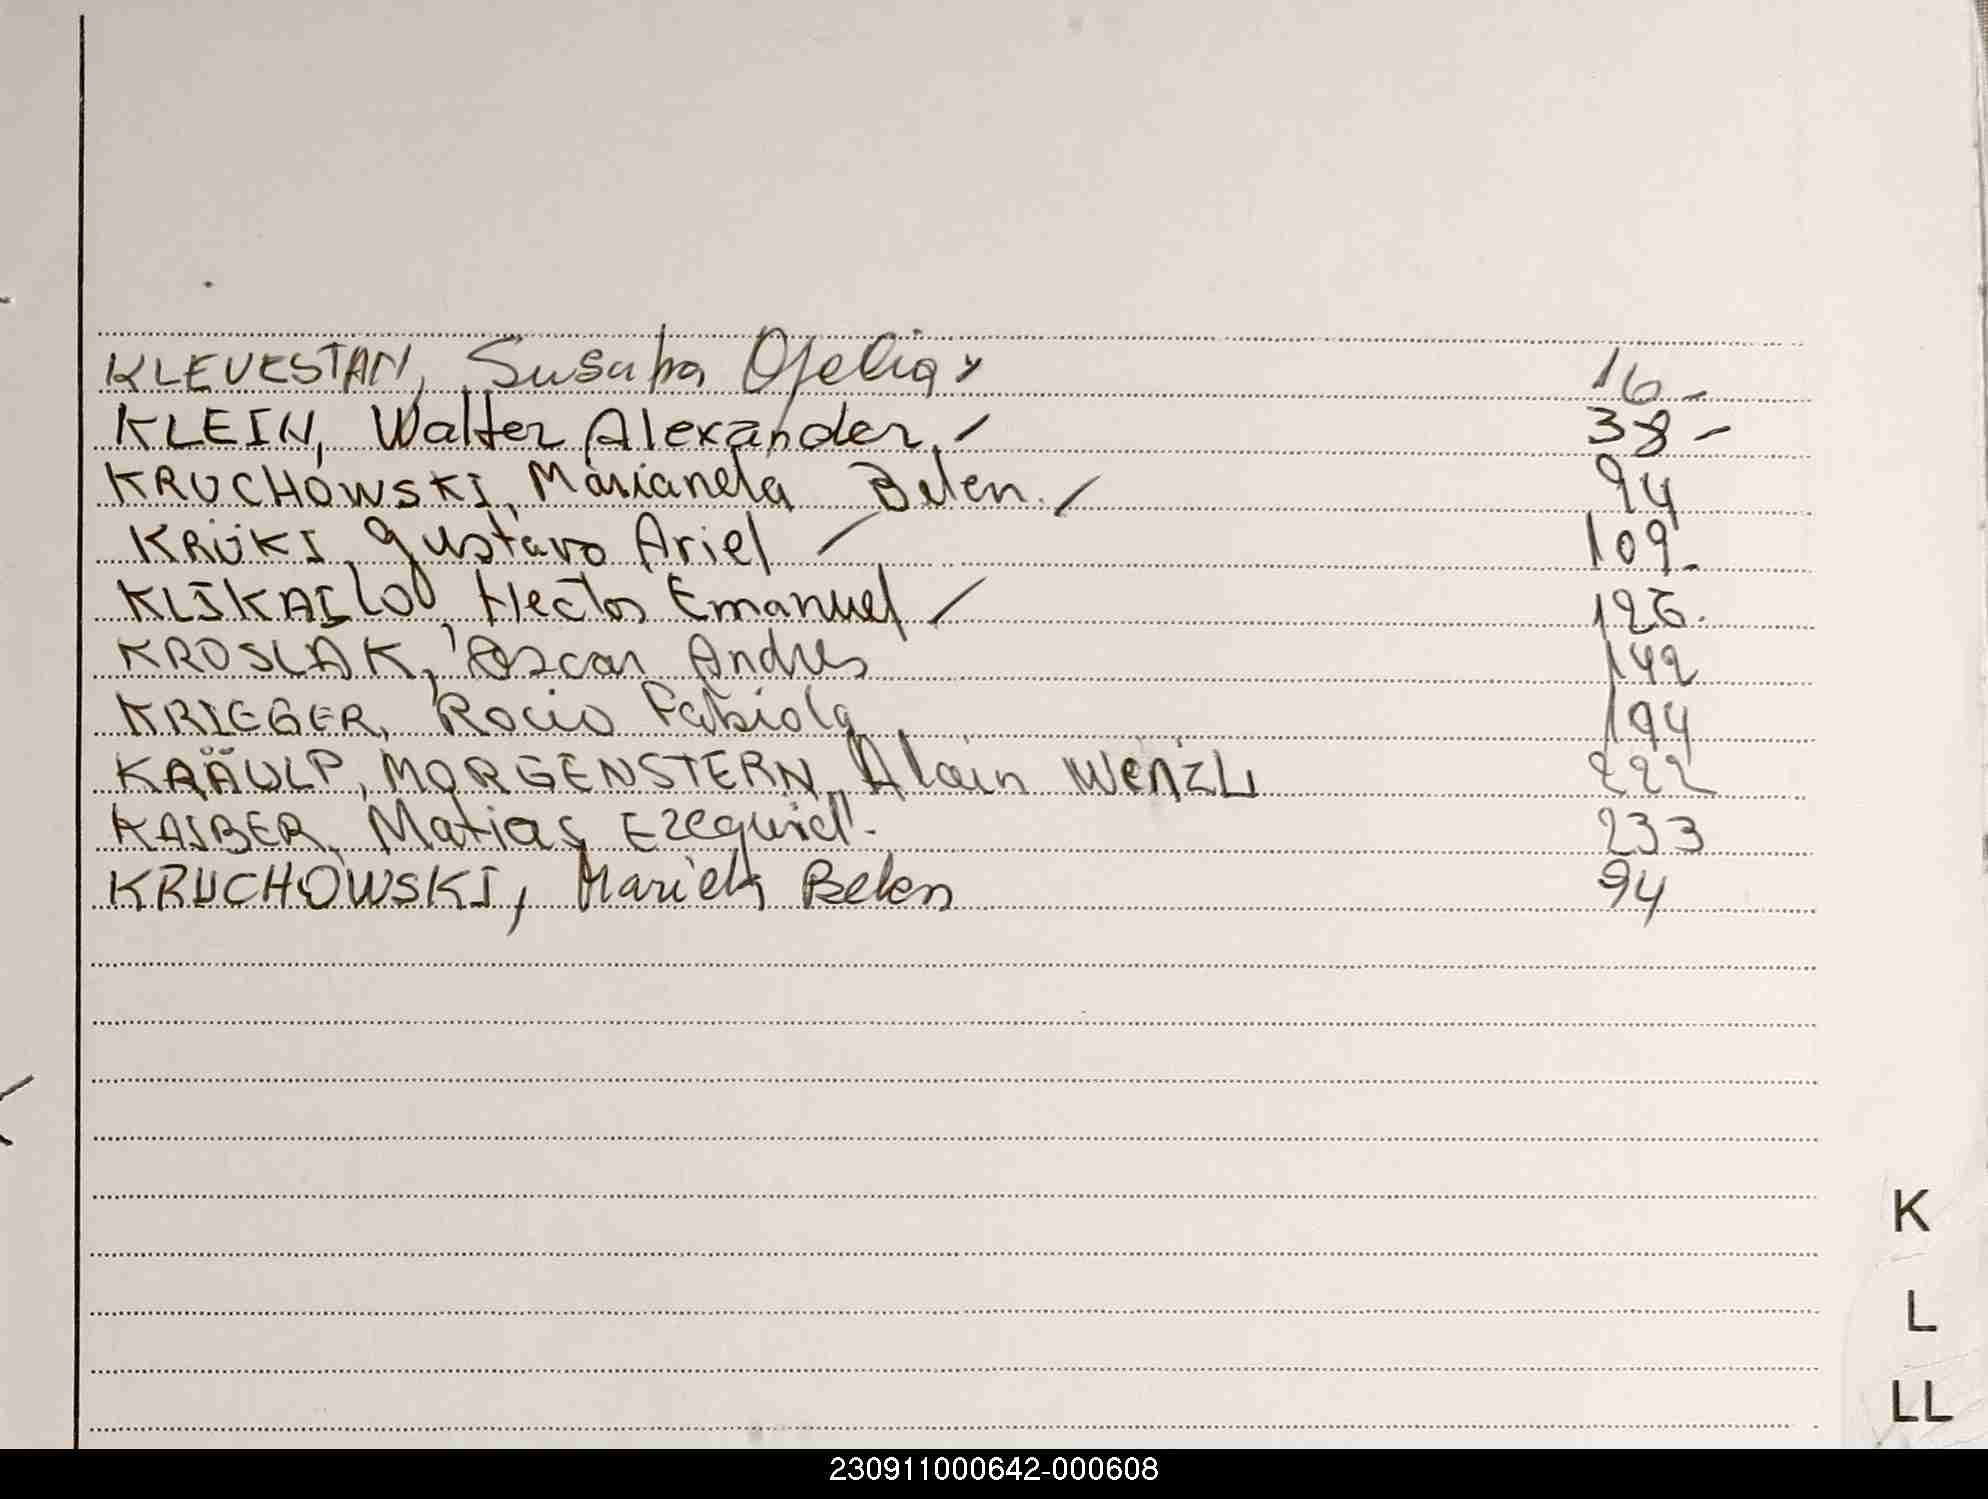 KLEVESTAN, Susana Ofelia 16-
KLEIN, Walter Alexander 38-
KRUCHOWSKI, Marianela Belen. 94
KRÜKI, Gustavo Ariel 109-
KLIKAILO, Hector Emanuel 126.
KROSLAK, Oscar Andres 142
KRIEGER, Rocio Fabiola 194
MORGENSTERN, Alain 222
KAIBER, Matias Ezequiel. 233
KRUCHOWSKI, Mariela Belen 94
K
L
LL
230911000642-000608